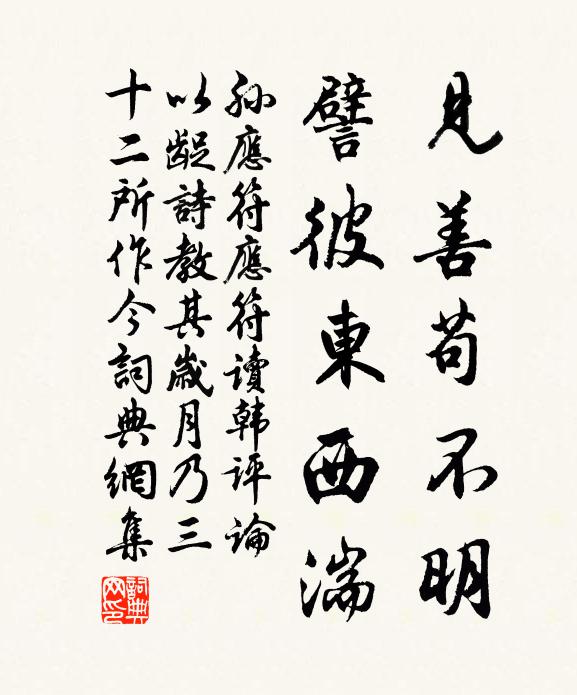 見善苟不明
譬彼東西湍
孙應符應符讀韩評論
以齪詩教其歲月乃三
十二所作今詞典網集
詞典网印